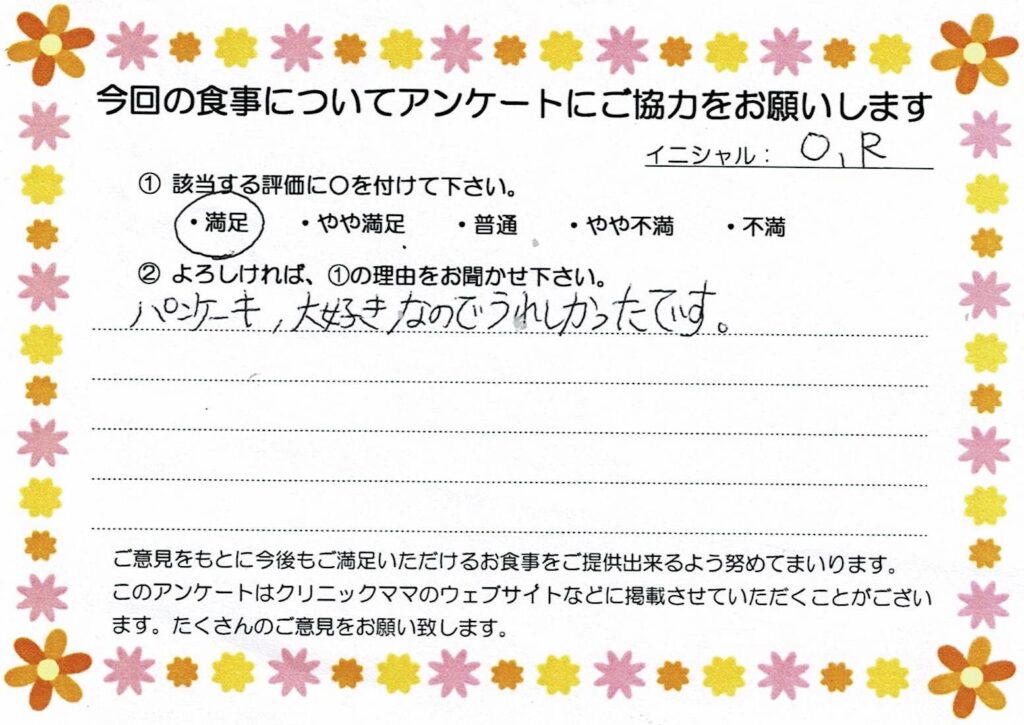 今回の食事についてアンケートにご協力をお願いします
イニシャル： O,R
① 該当する評価に〇を付けて下さい。
・満足 ・やや満足 ・普通 ・やや不満 ・不満
② よろしければ、①の理由をお聞かせ下さい。
パンケーキ,大好きなのでうれしかったです。
ご意見をもとに今後もご満足いただけるお食事をご提供出来るよう努めてまいります。
このアンケートはクリニックママのウェブサイトなどに掲載させていただくことがござい
ます。たくさんのご意見をお願い致します。